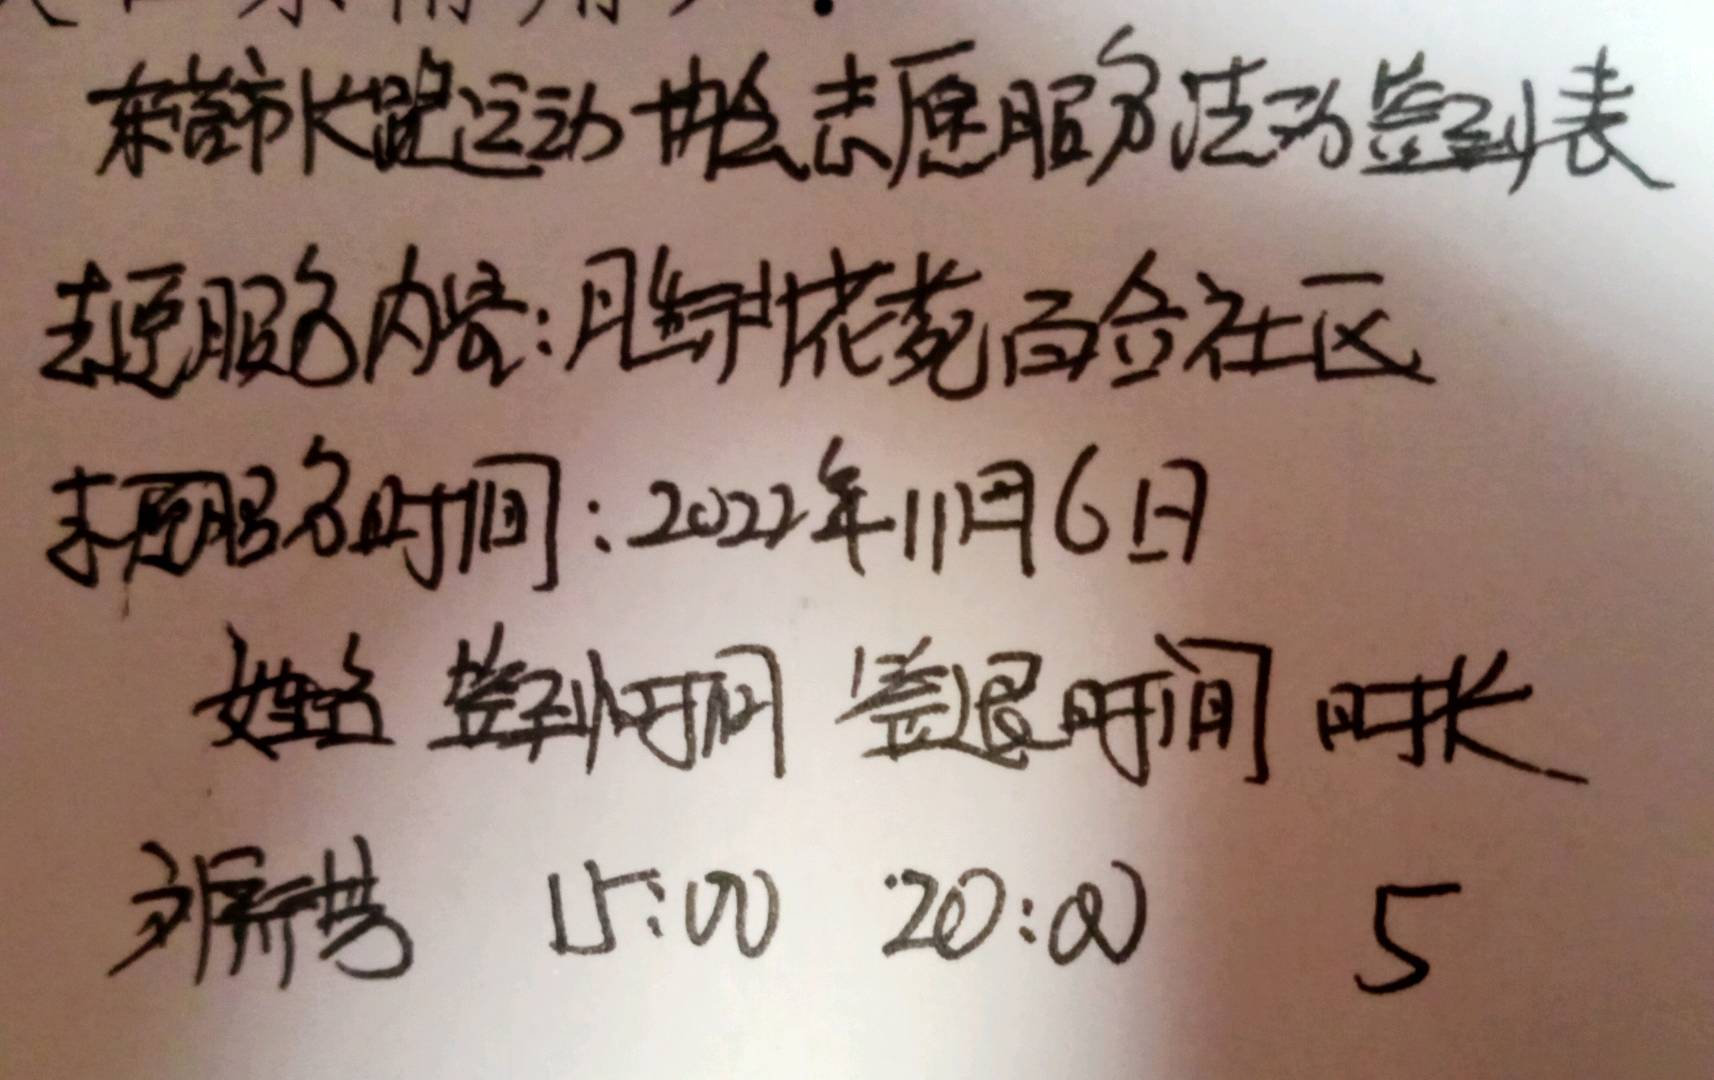 东莞市长跑运动协会志愿服务活动签到表
志愿服务内容：胜利花苑百合社区
志愿服务时间：2022年11月6日
姓名 签到时间 签退时间 时长
15:00 20:00 5